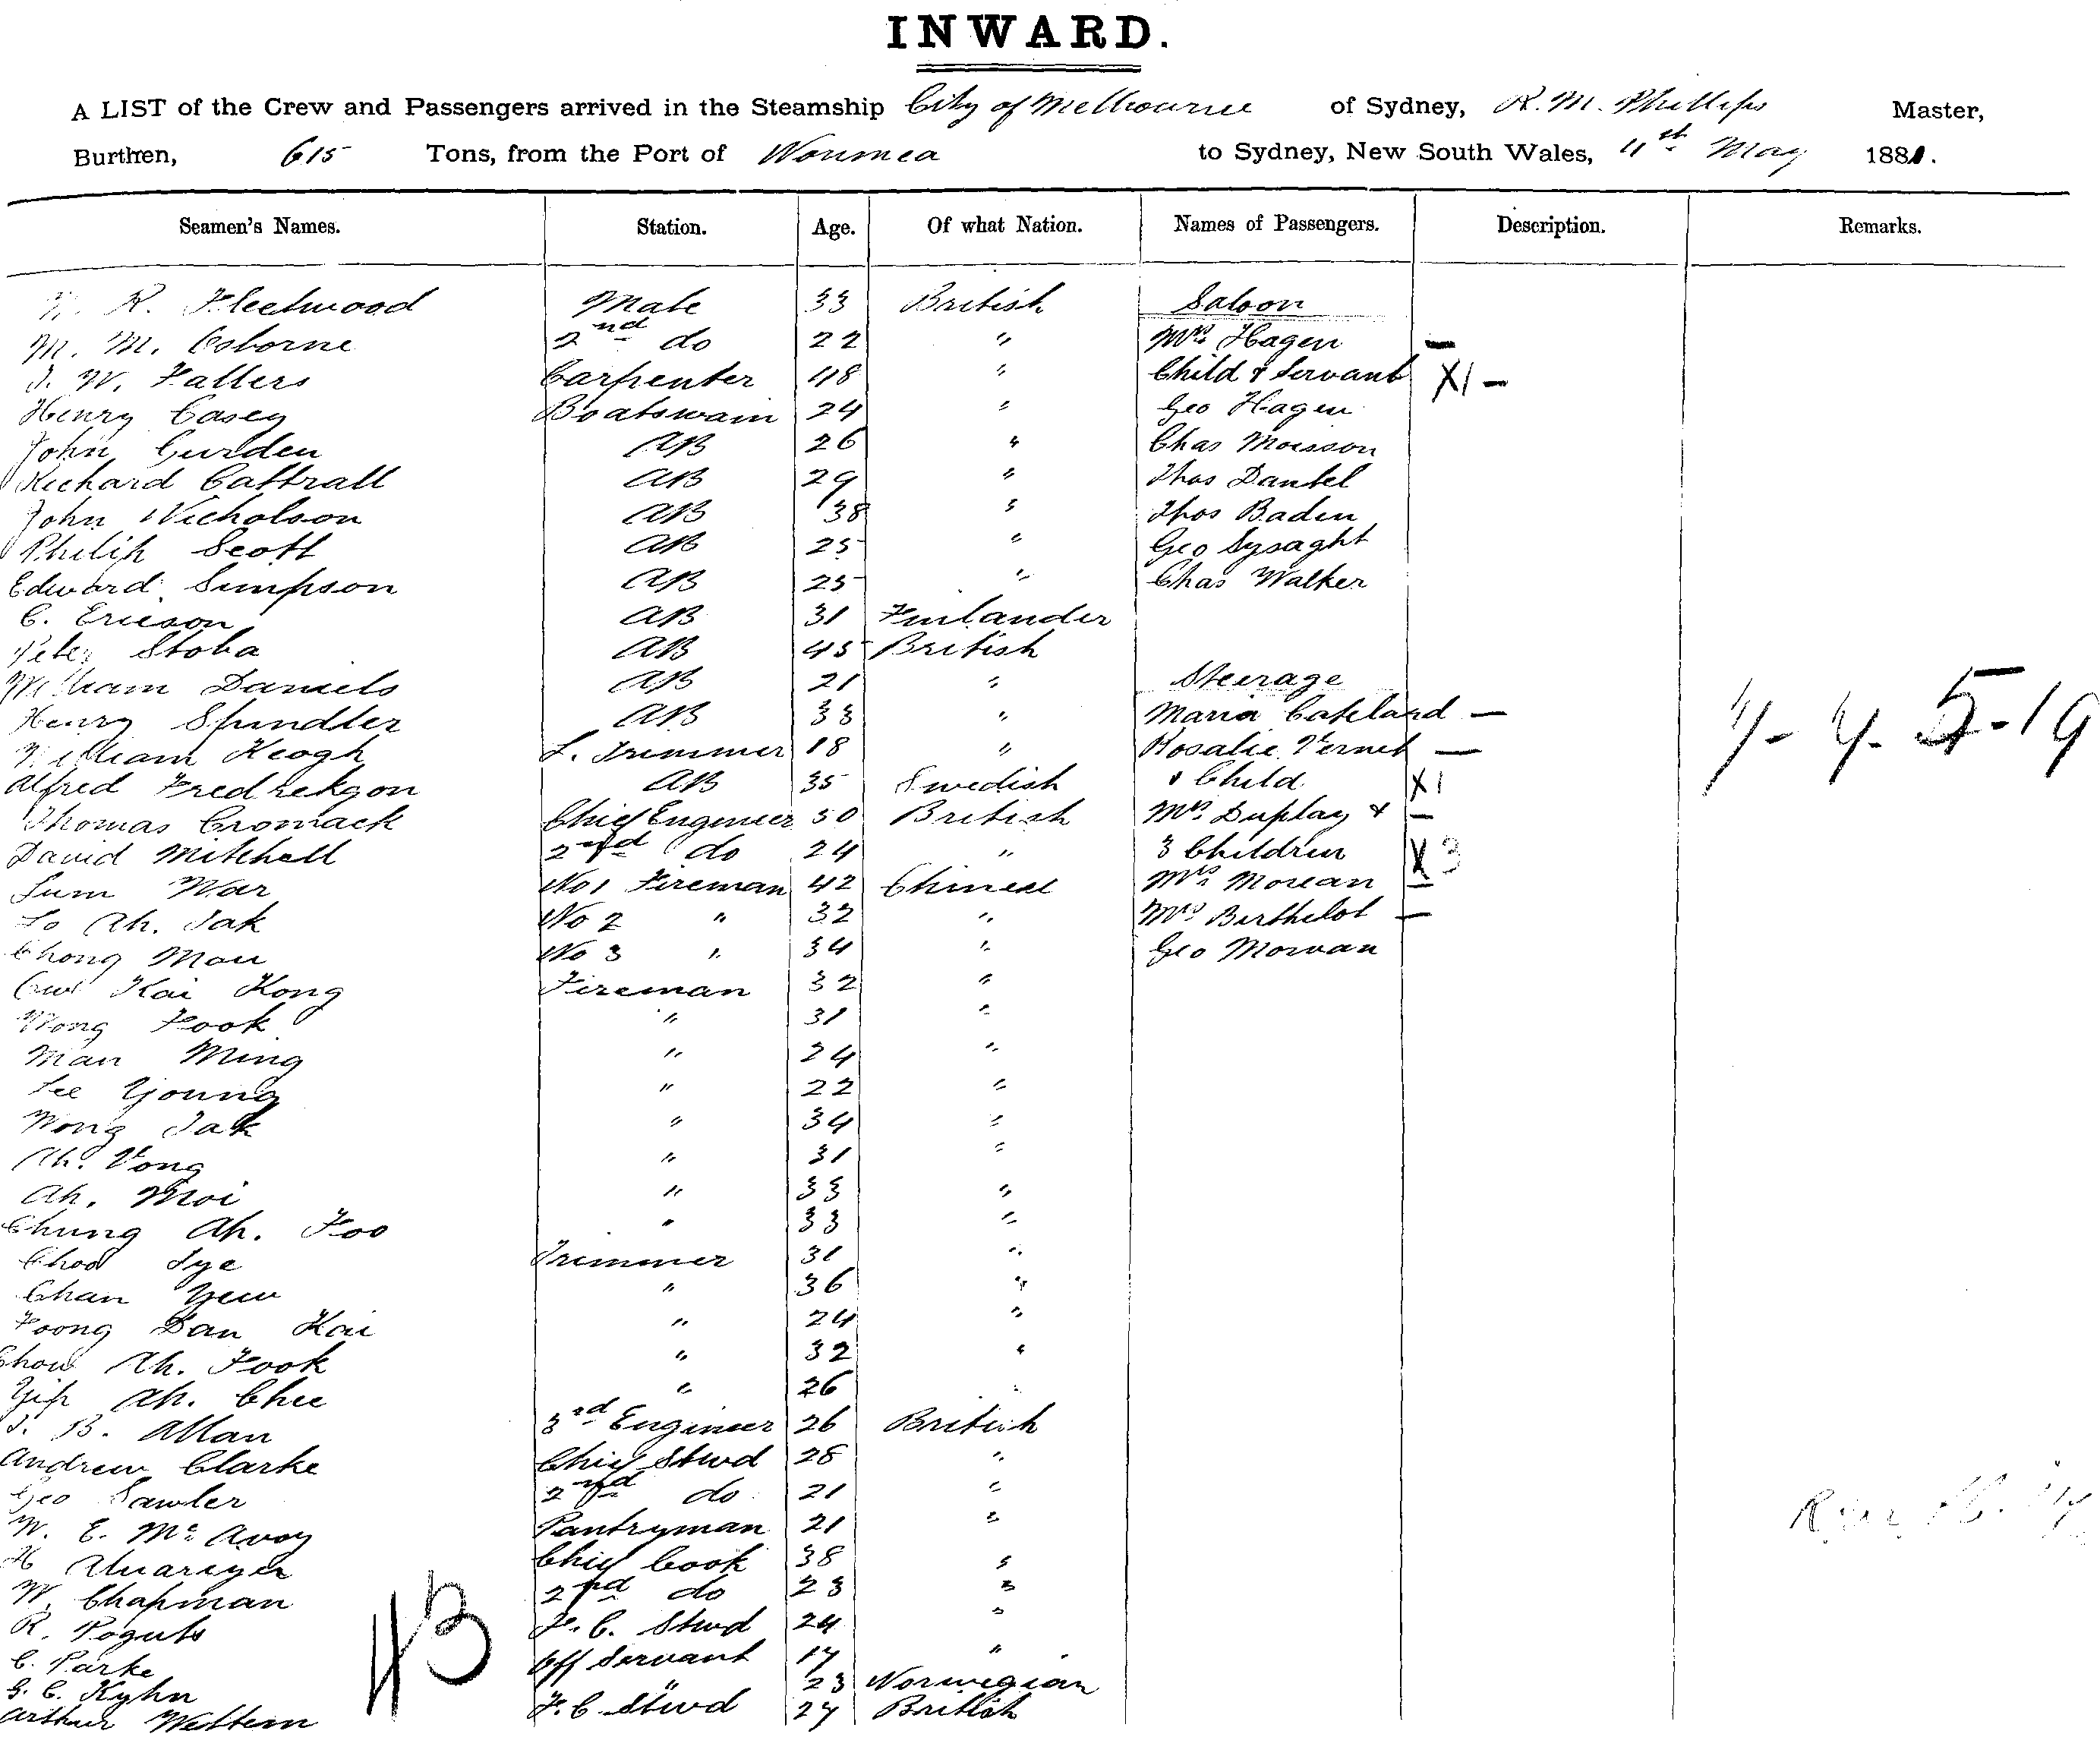 INWARD.
A LIST of the Crew and Passengers arrived in the Steamship City of Melbourne of Sydney, R. M. Phillips Master,
Burthen, 615 Tons, from the Port of Noumea to Sydney, New South Wales, 4th May 1881.
Seamen's Names. Station. Age. Of what Nation. Names of Passengers. Description. Remarks.
R. Fleetwood Mate 33 British Saloon
M. M. Osborne 2nd do 22 " Mrs Hagen —
J. W. Fallers Carpenter 48 " Child & Servant X1 —
Henry Casey Boatswain 24 " Geo Hagen
John Gurden AB 26 " Chas Moisson
Richard Cattrall AB 29 " Thos Dantel
John Nicholson AB 38 " Thos Baden
Philip Scott AB 25 " Geo Lysaght
Edward Simpson AB 25 " Chas Walker
C. Ericson AB 31 Finlander
Peter Stoba AB 45 British
William Daniels AB 21 " Steerage
Henry Spindler AB 33 " Maria Copeland —
William Keogh L. Trimmer 18 " Rosalie Vernet — 4-5-19
Alfred Fredrekson AB 35 Swedish & Child X1
Thomas Cromack Chief Engineer 50 British Mrs Duplay & —
David Mitchell 2nd do 24 " 3 Children X3
Sum War No 1 Fireman 42 Chinese Mrs Morean —
Lo Ah. Tak No 2 " 32 " Mrs Berthelot —
Chong Mou No 3 " 34 " Geo Morvan
Kai Kong Fireman 32 "
Wong Fook " 31 "
Man Ming " 24 "
Lee Young " 22 "
Wong Tak " 34 "
Ah. Vong " 31 "
Ah. Moi " 33 "
Chung Ah. Foo " 33 "
Choo Tye Trimmer 31 "
Chan Yew " 36 "
Foong Dan Kai " 24 "
Chow Ah. Fook " 32 "
Yip Ah. Chee " 26 "
J. B. Allan 3rd Engineer 26 British
Andrew Clarke Chief Stwd 28 "
Geo Lawler 2nd do 21 "
W. E. McAvoy Pantryman 21 "
H Chief Cook 38 "
W. Chapman 2nd do 23 "
R. F. C. Stwd 24 "
C. Parke Off Servant 17 "
G. C. Kyhn " 23 Norwegian
Arthur Western F. C Stwd 27 British
43